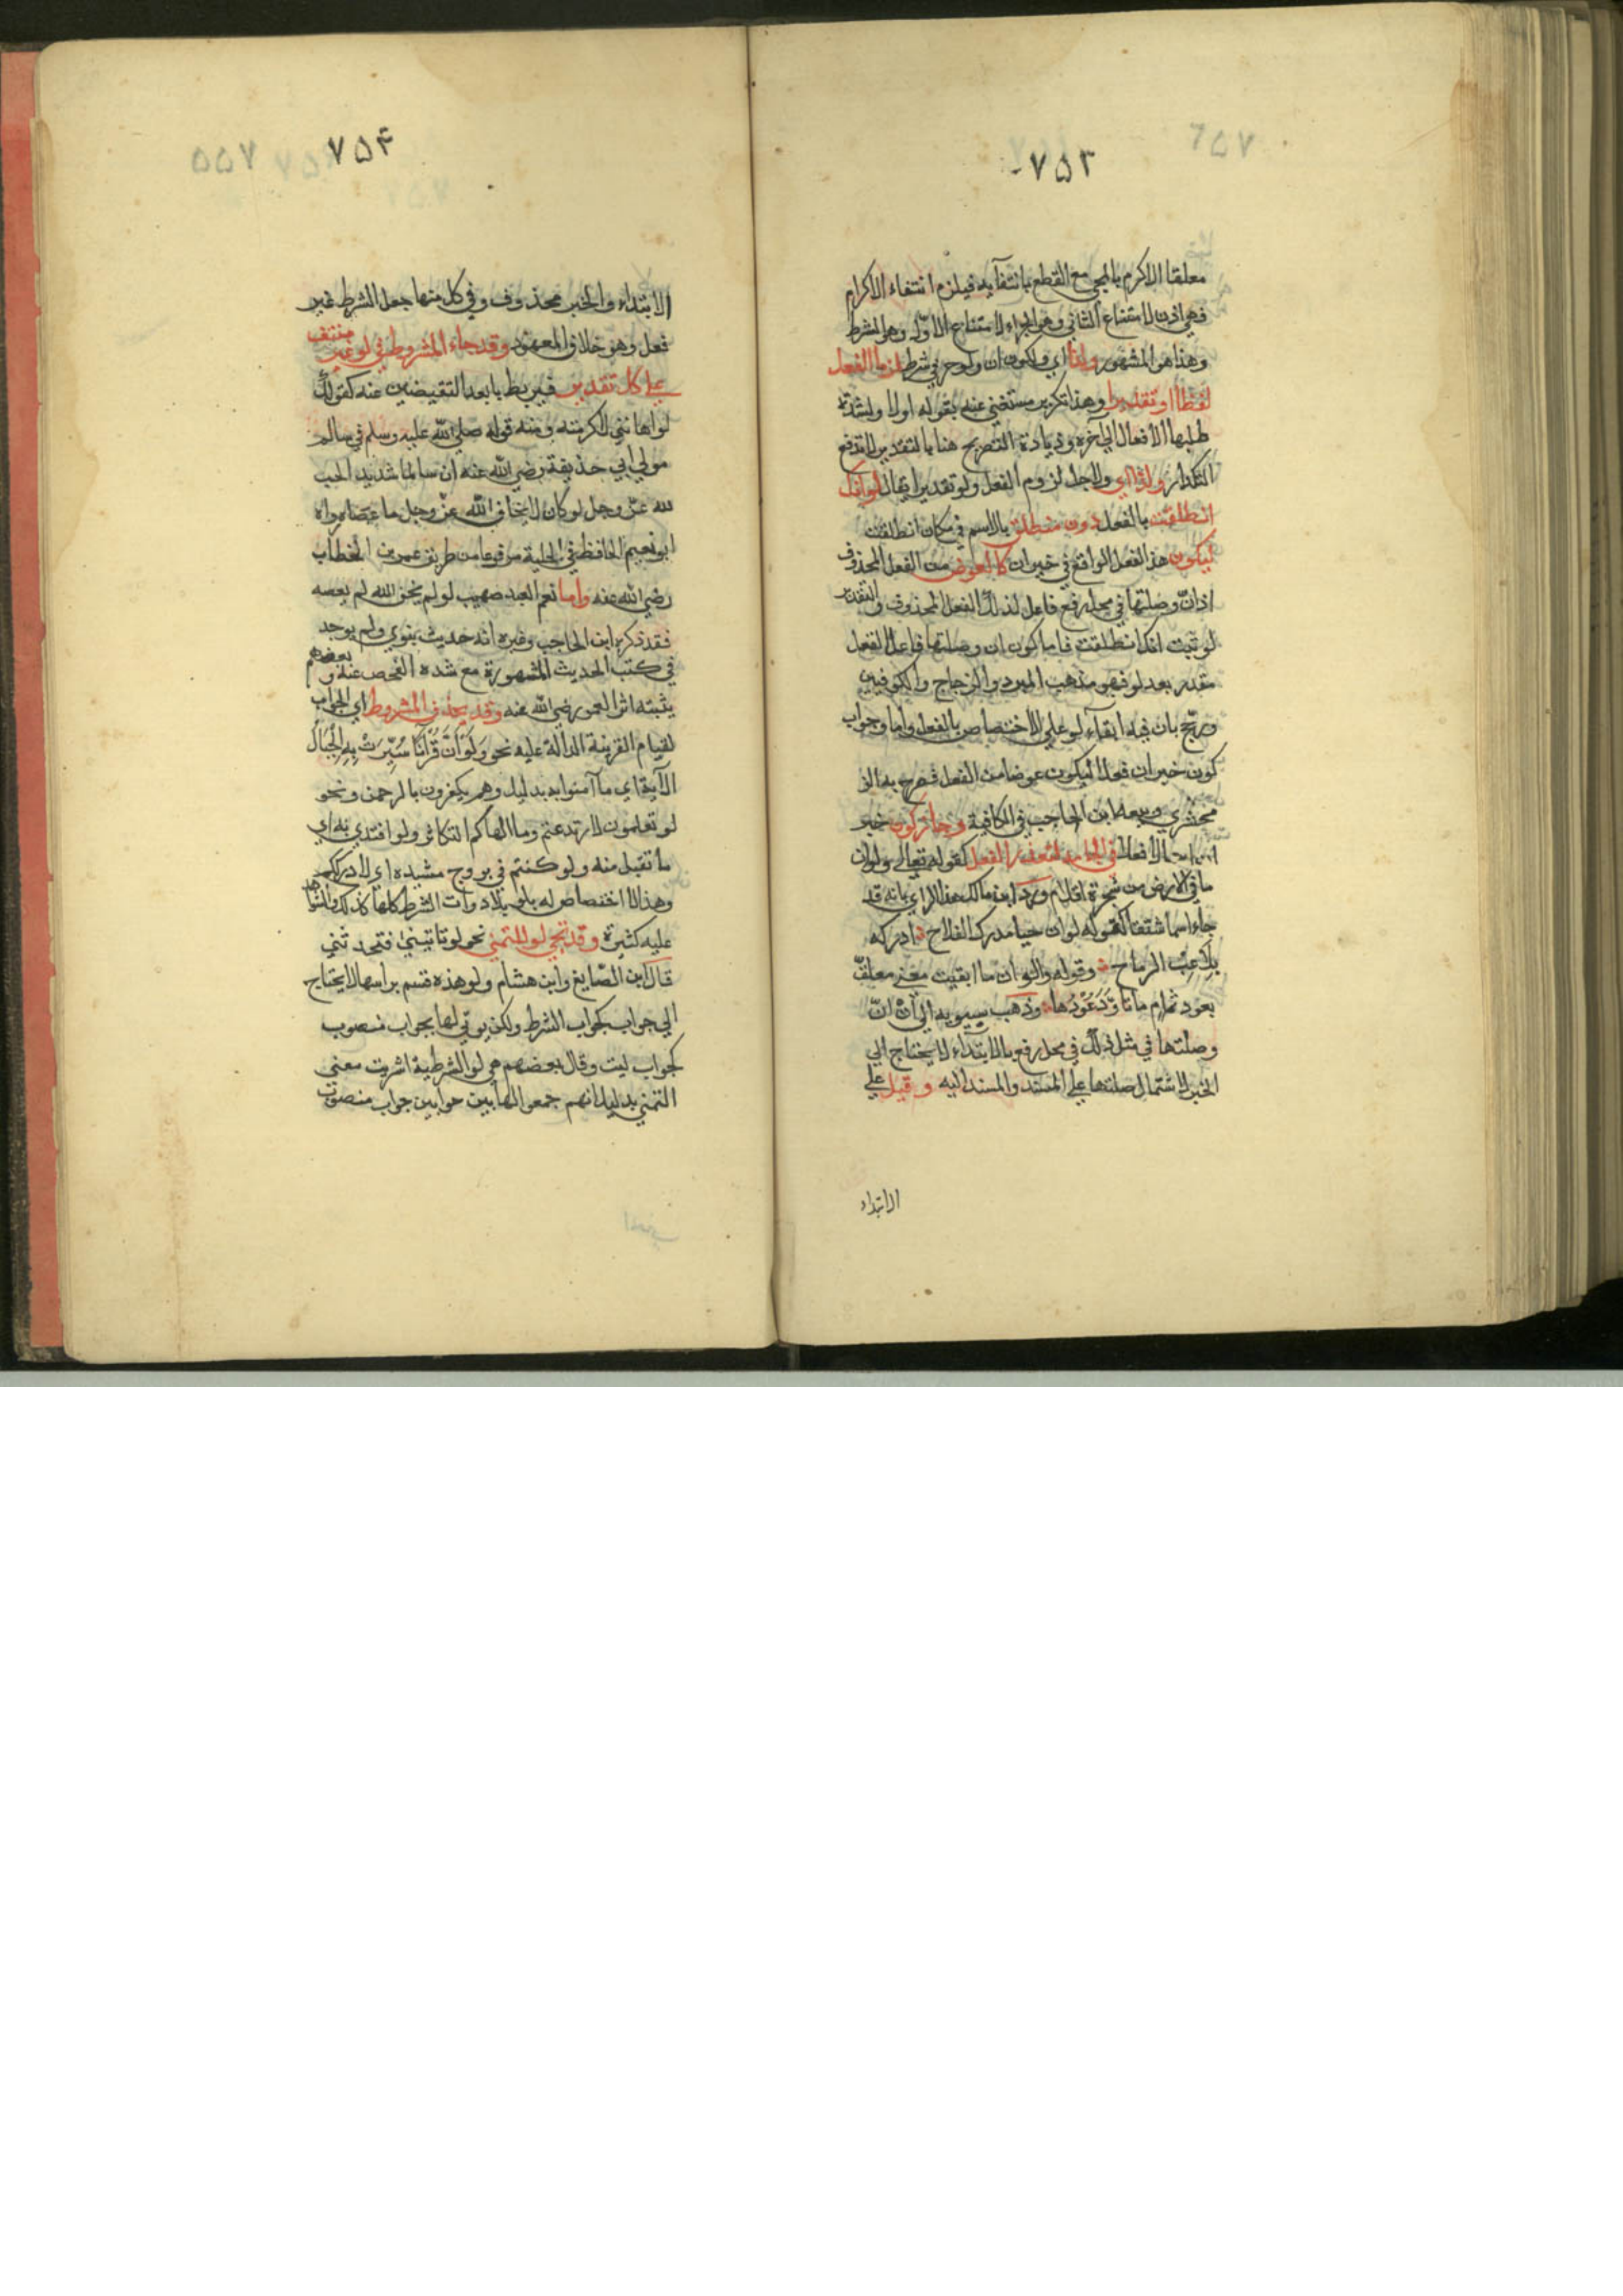 ٧٥٣
معلقا الاكرم بالمجي مع القطع بانتفآيه فيلزم انتفاء الاكرام
فهي اذن لامتناع الثاني وهو الجزاء لامتناع الاول وهو الشرط
وهذا هو المشهور ولذا اي ولكون ان ولو حرفي شرط لزما الفعل
لفظا او تقديرا وهذا تكرير مستغني عنه بقوله اولا ولشدة
طلبها الأفعال الي آخره وزيادة التصريح هنا بالتقدير لا تدفع
التكرار ولذا اي ولاجل لزوم الفعل ولو تقديرا يقال لو انك
انطلقت بالفعل دون منطلق بالاسم في مكان انطلقت
ليكون هذا الفعل الواقع في خبر ان كالعوض من الفعل المحذوف
اذ انّ وصلتها في محل رفع فاعل لذلك الفعل المحذوف والتقدير
لو ثبت انك انطلقت فاما كون ان وصلتها فاعل الفعل
مقدر بعد لو فهو مذهب المبرد والزجاج والكوفيين
ورجّح بان فيه ابقآء لو علي الاختصاص بالفعل واما وجواب
كون خبر ان فعلا ليكون عوضا من الفعل فصرح به الز
مخشري وتبعه ابن الحاجب في الكافية وجاز كون خبر
الافعال في الجامد لتعذر الفعل كقوله تعالي ولو ان
ما في الارض من شجرة اقلام ورد ابن مالك هذا الراي بانه قد
جاء اسما مشتقا كقوله لو ان حيا مدرك الفلاح ادركه
بلاعب الرماح وقوله ولو ان ما ابقيت مني معلقّ
بعود ثمام ما تاوَّدَ عُوْدُها وذهب سيبويه الي انْ انّ
وصلتها في مثل ذلك في محل رفع بالابتداء لا يحتاج الي
الخبر لاشتمال صلتها علي المسند والمسند اليه وقيل علي
الابتداء
٧٥٤
الابتداء والخبر محذوف وفي كل منها جعل الشرط غير
فعل وهو خلاف المعهود وقد جاء المشروط في لو غير منتف
علي كل تقدير فيربط بابعد النقيضين عنه كقولك
لو اهانني لاكرمته ومنه قوله صلي الله عليه وسلم في سالم
مولي ابي حذيفة رضي الله عنه ان سالما شديد الحب
لله عزّ وجل لو كان لا يخاف الله عزّ وجل ما عصاه رواه
ابو نعيم الحافظ في الحلية مرفوعا من طريق عمر بن الخطاب
رضي الله عنه واما نعم العبد صهيب لو لم يخف الله لم يعصه
فقد ذكره ابن الحاجب وغيره انه حديث نبوي ولم يوجد
في كتب الحديث المشهورة مع شده الفحص عنه وبعضهم
يثبته اثرا لعمر رضي الله عنه وقد يحذف المشروط اي الجواب
لقيام القرينة الدالة عليه نحو وَلَوْ اَنَّ قُرْآنًا سُيِّرَتْ بِهِ الْجِبَالُ
الآية اي ما آمنوا به بدليل وهم يكفرون بالرحمن ونحو
لو تعلمون لارتدعتم وما الهاكم التكاثر ولو افتدي به اي
ما تقبل منه ولو كنتم في بروج مشيده اي لادرككم
وهذا لا اختصاص له بلو بل ادوات الشرط كلها كذلك
عليه كثيرة وقد تجي لو للتمني نحو لو تاتيني فتحدثني
قال ابن الصّايغ وابن هشام ولو هذه قسم براسها لا يحتاج
الي جواب كجواب الشرط ولكن يوتي لها بجواب منصوب
كجواب ليت وقال بعضهم هي لو الشرطية اشربت معني
التمني بدليل انهم جمعوا لها بين جوابين جواب منصوب